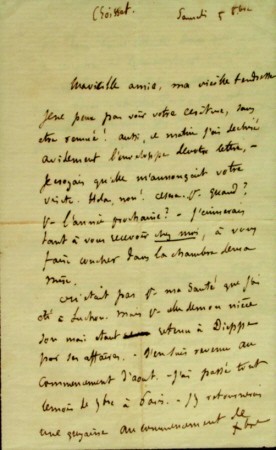 Croisset. Samedi 5 8bre
Ma vieille amie, ma vieille tendresse
Je ne peux pas voir votre écriture, sans
être remué ! aussi, ce matin j'ai déchiré
avidement l'enveloppe de votre lettre. –
Je croyais qu'elle m'annonçait votre
visite. Hélas, non ! ce sera p. quand ?
p. l'année prochaine ? – J'aimerais
tant à vous recevoir chez moi, à vous
faire coucher dans la chambre de ma
mère.
Ce n'était pas p. ma santé que j'ai
été à Luchon. mais p. de ma nièce
son mari étant retenu à Dieppe
par ses affaires. – J'en suis revenu au
commencement d'août. – J'ai passé tout
le mois de 7bre à Paris. – J'y retournerai
une quinzaine au commencement de
Xbre